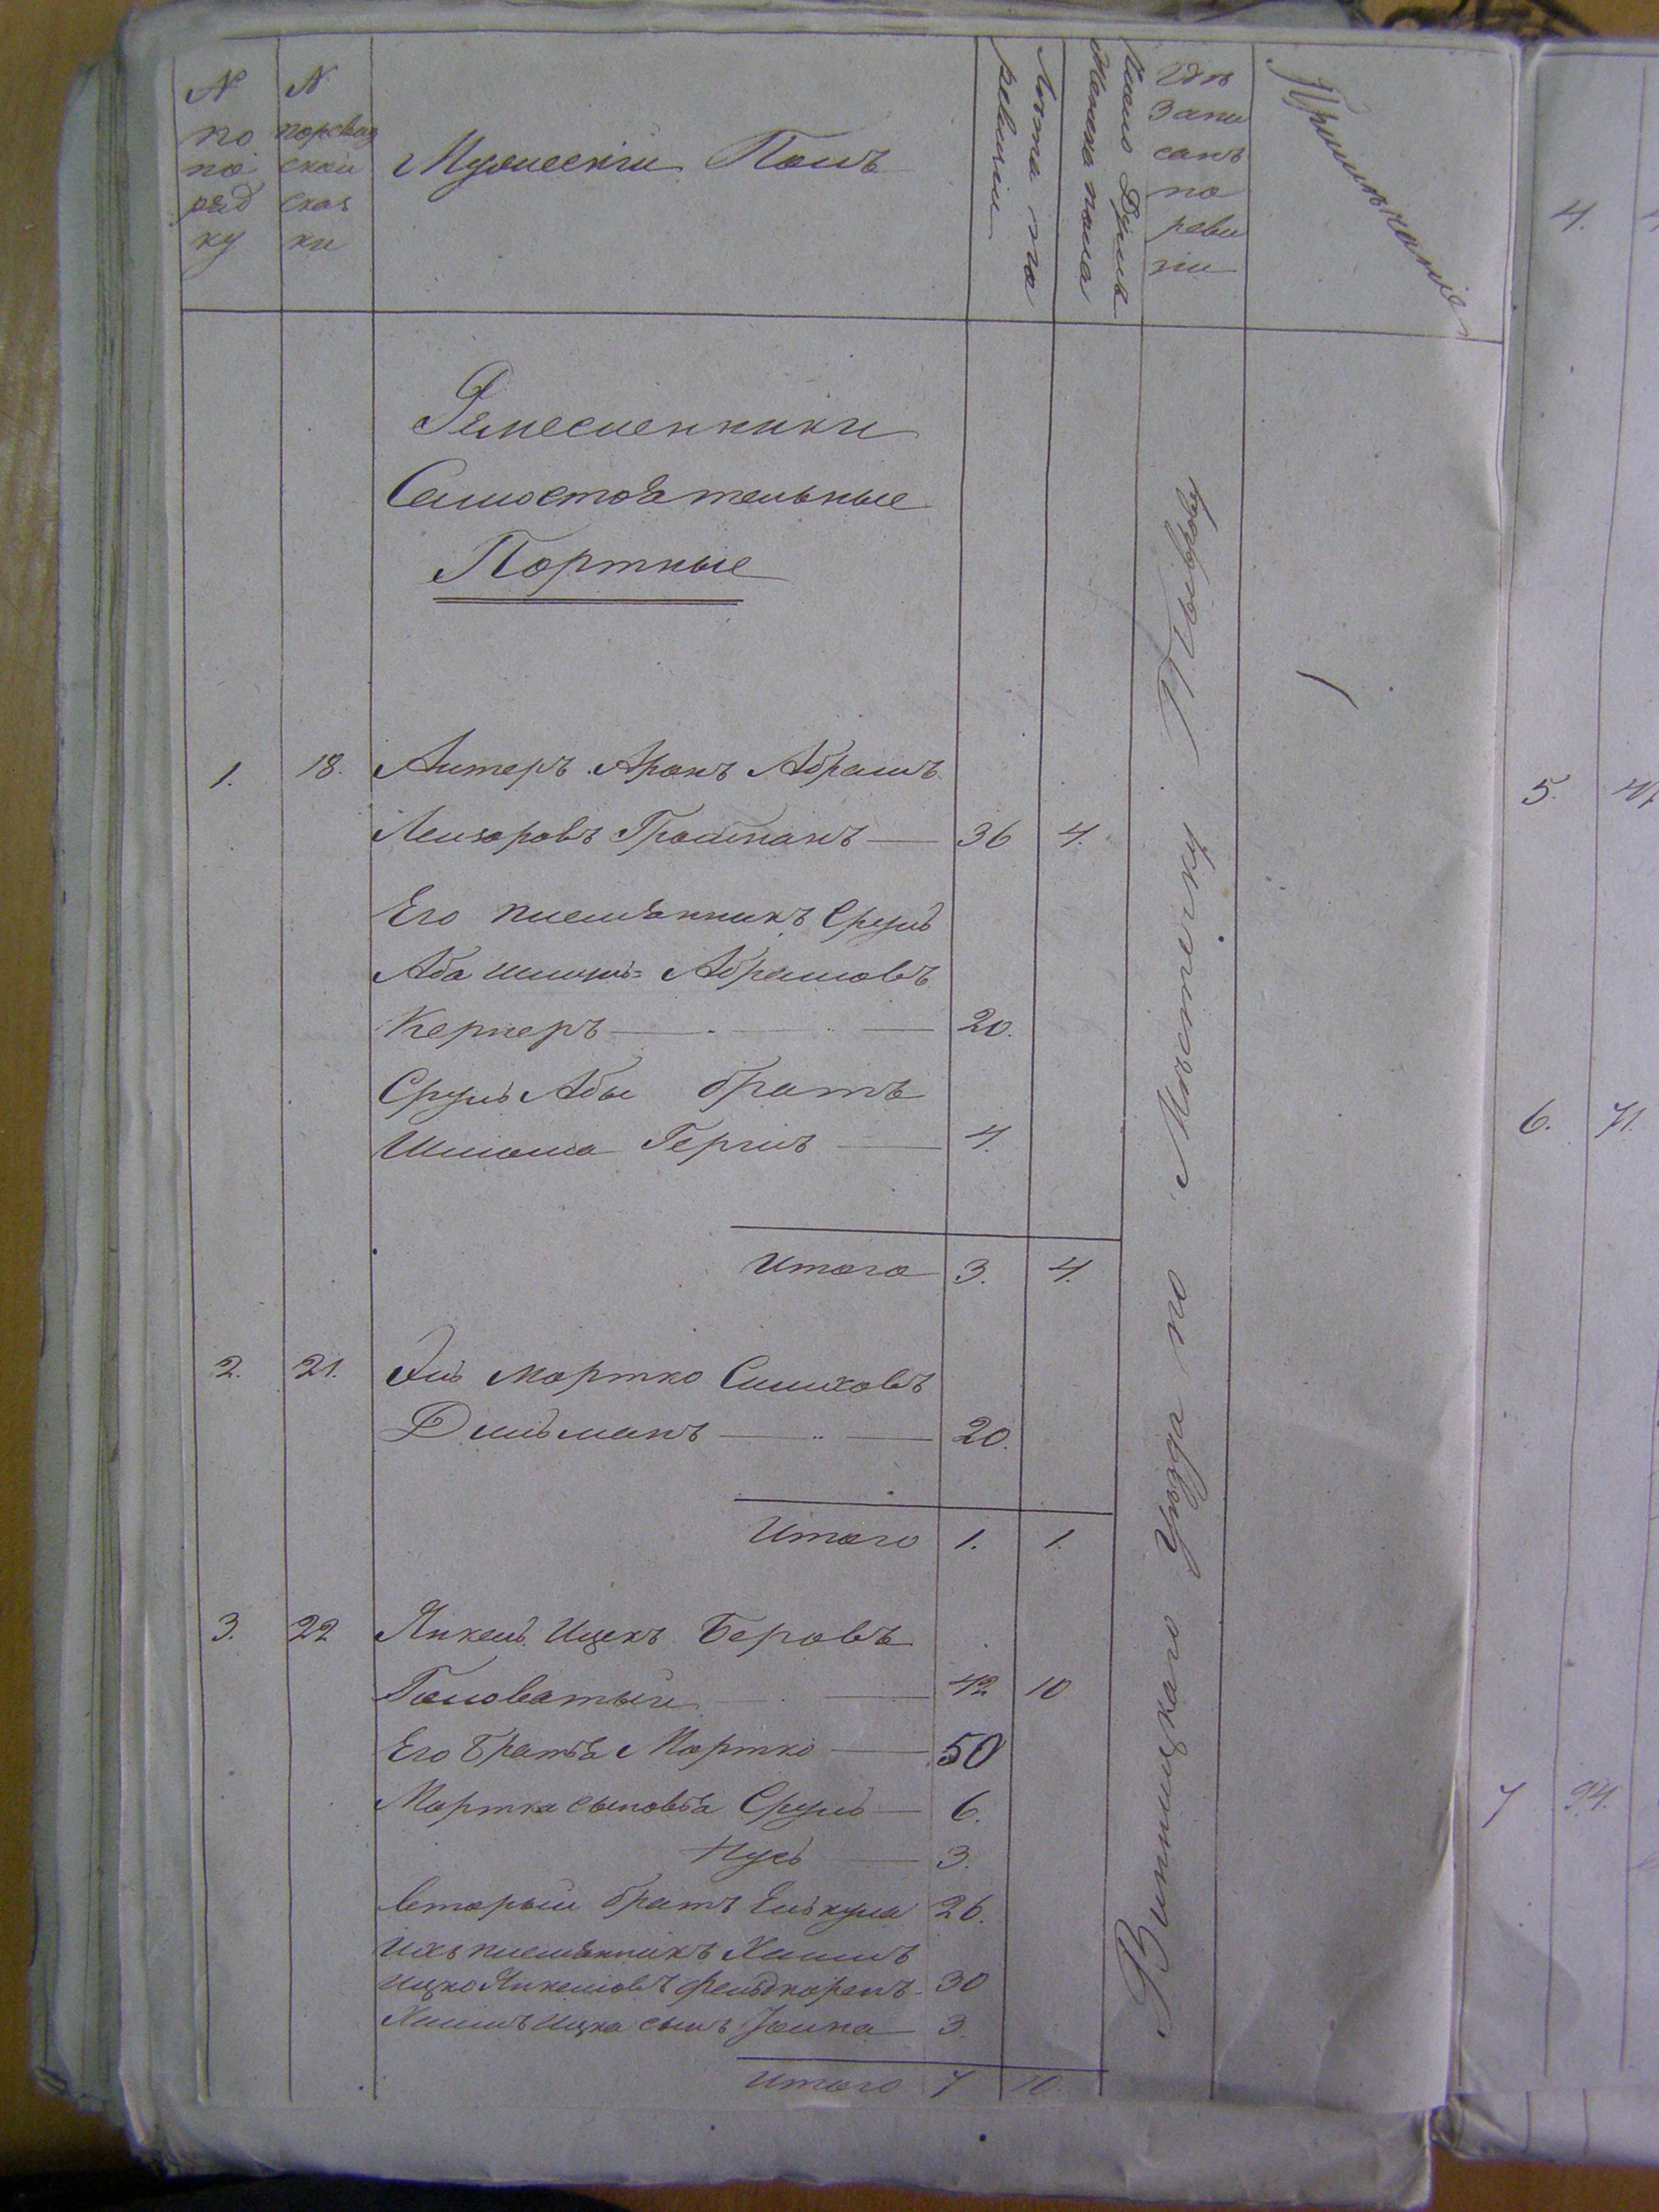 № по поряд ку
№ поревиз ской сказ ки
Мужескій Полъ
Лѣта по ревизіи
Число Душъ Женска пола
Гдѣ Запи санъ по реви зіи
Примѣчаніе
Ремесленники
Самостоятельные
Портные
1. 18. Алтеръ Аронъ Абрамъ
Лейзоровъ Гройсманъ 36 4.
Его племянникъ Сруль
Аба Абрамовъ
Кернеръ 20.
Сруль Абы братъ
Шлиома Гершъ 4.
Итого 3. 4.
2. 21. Эль Мортко Симховъ
Дильманъ 20.
Итого 1. 1.
3. 22 Янкель Ицекъ Беровъ
Головатый 42 10
Его братья Мортко 50
Мортка сыновья Сруль 6.
Нусь 3.
вторый братъ Елькуна 26.
Ихъ племянникъ Хаимъ
Ицко Янкелевъ Фельдкоренъ 30
Хаимъ Ицка сынъ 3.
Итого 7 10.
Винницкаго Уѣзда по Мѣстечку Тыврову
4.
5.
6. 71.
7 94.